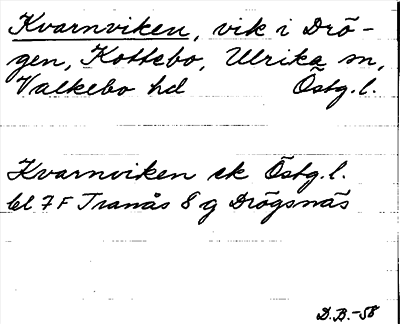 Kvarnviken, vik i Drö-
gen, Kottebo, Ulrika sn,
Valkebo hd Östg. l.
Kvarnviken ek Östg. l.
bl 7F Tranås 8 g Drögsnäs
D.B.-58